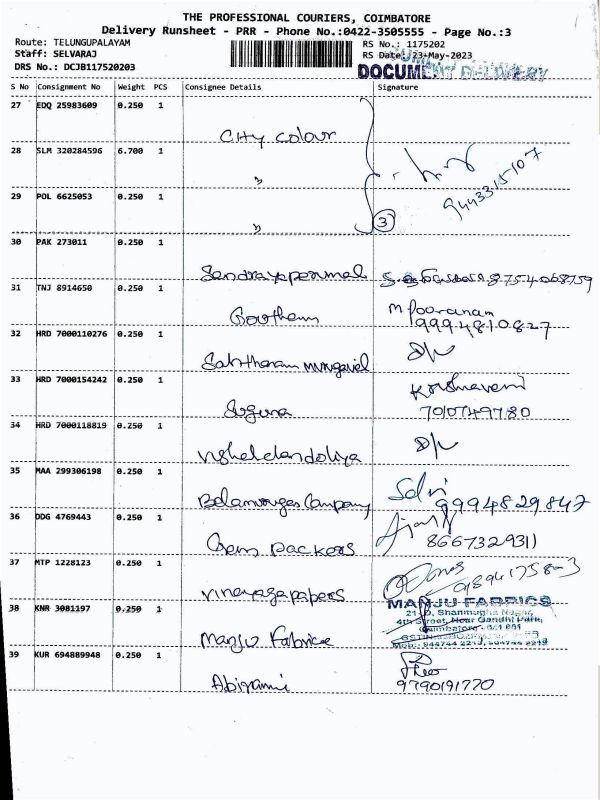 THE PROFESSIONAL COURIERS, COIMBATORE
Delivery Runsheet - PRR - Phone No.:0422-3505555 - Page No.:3
Route: TELUNGUPALAYAM
RS No.: 1175202
Staff: SELVARAJ
RS Date: 23-May-2023
DRS No.: DCJB117520203
DOCUMENT DELIVERY
S No Consignment No Weight PCS Consignee Details Signature
27 EDQ 25983609 0.250 1
City colour
28 SLM 320284596 6.700 1
"
9443315107
29 POL 6625053 0.250 1
"
3
30 PAK 273011 0.250 1
Sendrayaperumal 8754068759
31 TNJ 8914650 0.250 1
Goutham M Pooranam
9994810827
32 HRD 7000110276 0.250 1
D/L
33 HRD 7000154242 0.250 1
Krishnaveni
Suguna 7010749780
34 HRD 7000118819 0.250 1
D/L
35 MAA 299306198 0.250 1
Balamurugan Company Selvi 9994829847
36 DDG 4769443 0.250 1
Gem Packers 8667329311
37 MTP 1228123 0.250 1
Vinayaga papers
38 KNR 3081197 0.250 1
Manju Fabrics
MANJU FABRICS
21-D, Shanmugha Nagar,
4th Street, Near Gandhi Park,
Coimbatore - 641 001
39 KUR 694889948 0.250 1
Abirami 9790191770